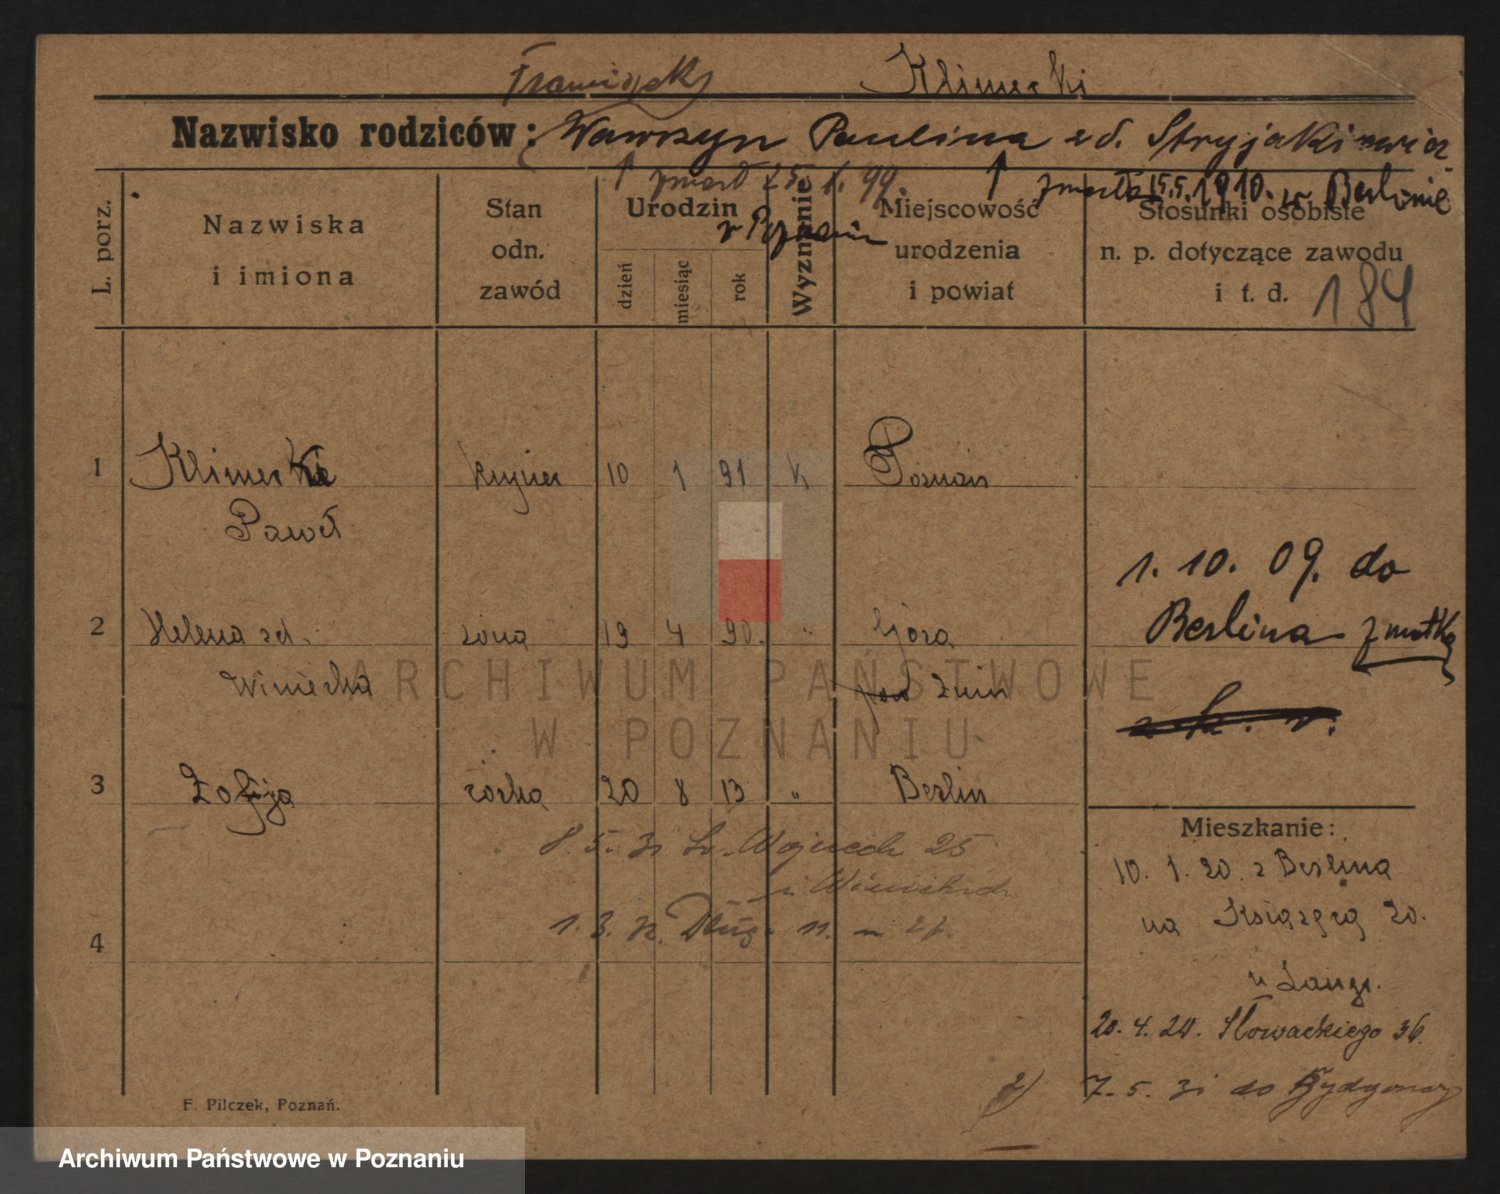 Franciszek Klimecki
Nazwisko rodziców: Wawrzyn Paulina zd. Stryjakiewicz
zmarł 25. 1. 99. zmarła 15.5.1910. w Berlinie
w Poznaniu
L. porz.
Nazwiska
i imiona
Stan
odn.
zawód
Urodzin
dzień
miesiąc
rok
Wyznanie
Miejscowość
urodzenia
i powiat
Stosunki osobiste
n. p. dotyczące zawodu
i t. d. 184
1 Klimecki 10 1 91 k Poznań
Paweł
1. 10. 09. do
Berlina z matką
2 Helena zd. żona 19 4 90. " Góra
Winiecka pow Żnin
z k. r.
3 Zofija córka 20 8 13 " Berlin
Mieszkanie:
8. 5. 31 Św. Wojciech 25
u Winieckich
1. 3. 32. Długa 11. m 21.
10. 1. 20. z Berlina
na Książęcą 20.
u Lange.
4
20. 4. 20. Słowackiego 36.
2) 7. 5. 31 do Bydgoszczy
F. Pilczek, Poznań.
ARCHIWUM PAŃSTWOWE
W POZNANIU
Archiwum Państwowe w Poznaniu